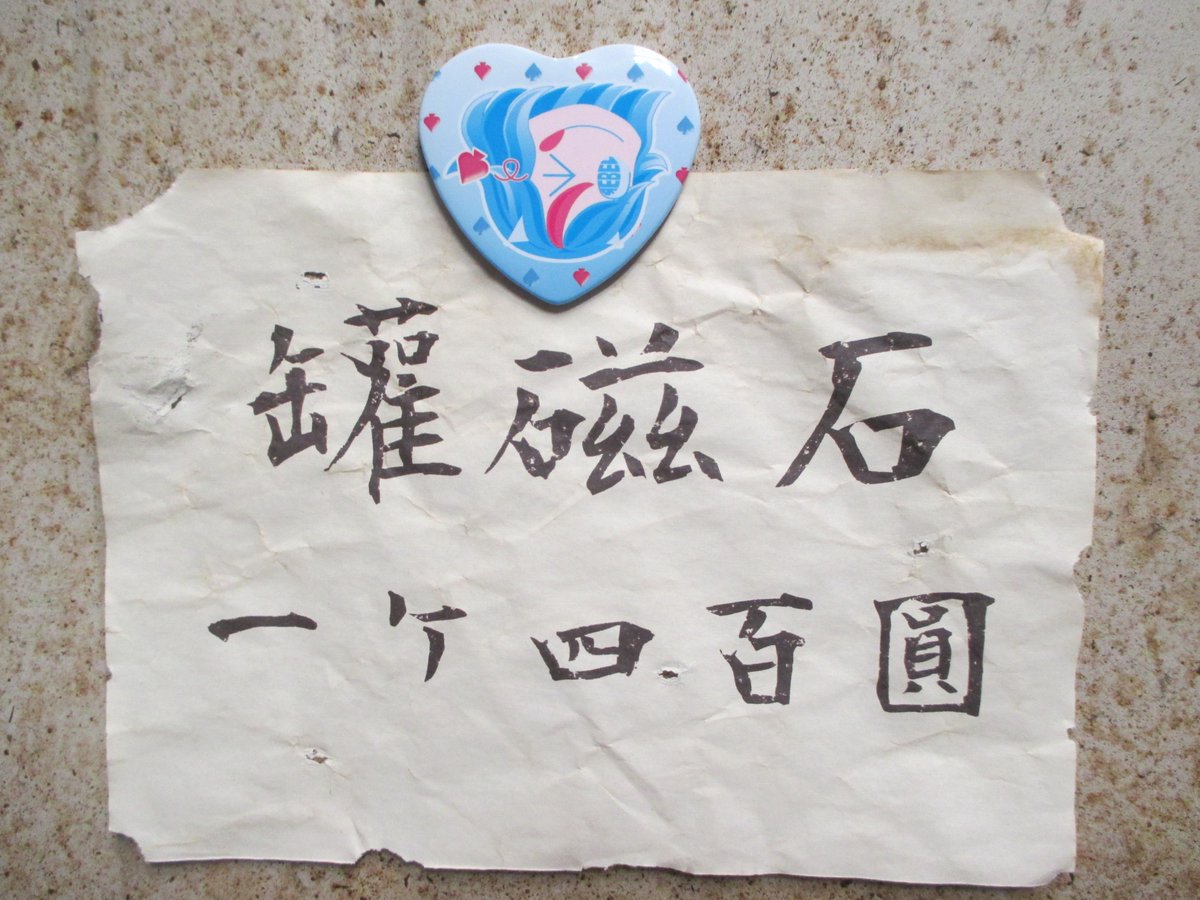 罐磁石
一ケ四百圓